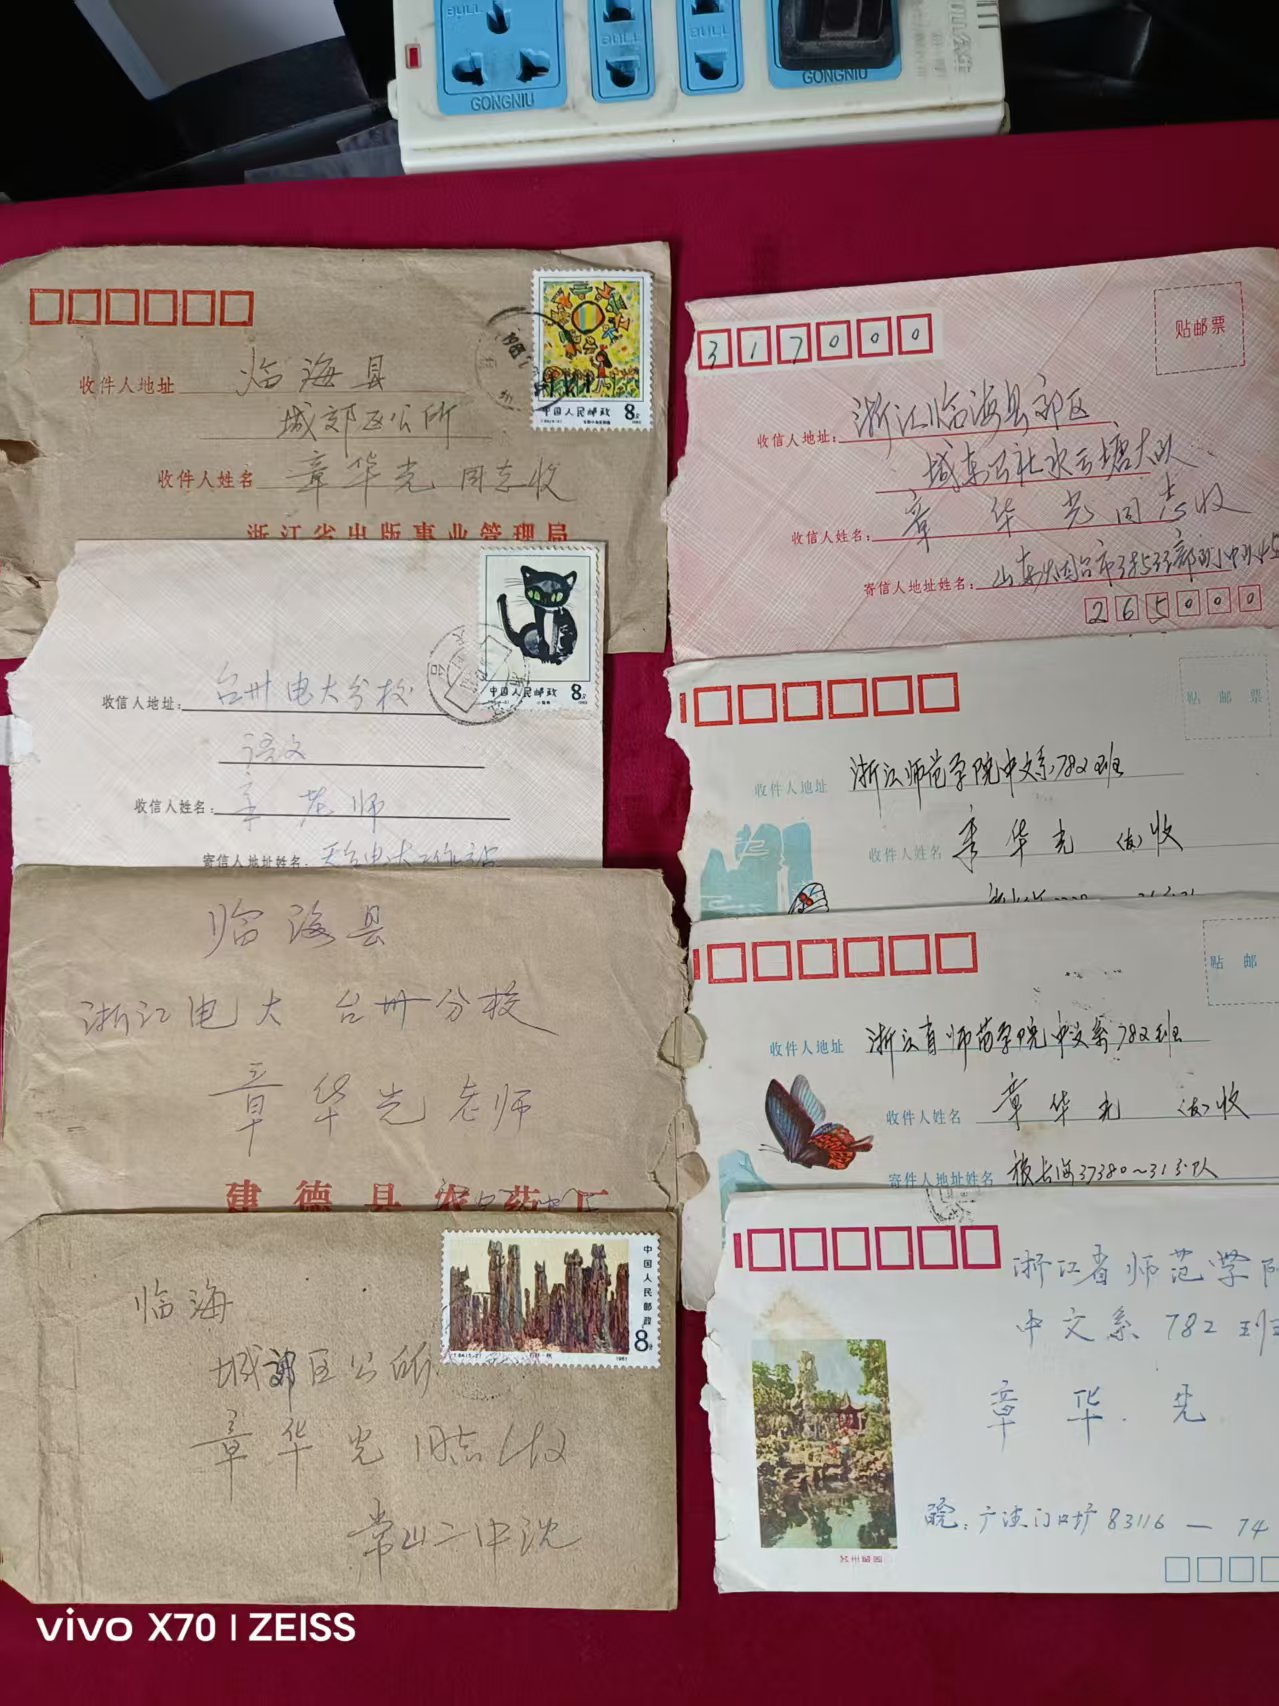 BULL
BULL
BULL
GONGNIU
GONGNIU
收件人地址 临海县
城郊区公所
收件人姓名 章华光 同志收
浙江省出版事业管理局
中国人民邮政 8分
收信人地址: 台州电大分校
语文
收信人姓名: 章老师
寄信人地址姓名: 天台电大工作站
中国人民邮政 8分
1983
临海县
浙江电大 台州分校
章华光老师
建德县农药厂
中国人民邮政
8分
T.64.(5-2)
1981
临海
城郊区公所
章华光 同志收
常山二中沈
贴邮票
317000
收信人地址: 浙江临海县郊区
城东公社水云塘大队
收信人姓名: 章华光同志收
寄信人地址姓名:
265000
贴邮票
收件人地址 浙江师范学院中文系782班
收件人姓名 章华光 (友)收
贴邮
收件人地址 浙江省师范学院中文系782班
收件人姓名 章华光 (友)收
寄件人地址姓名 镇长海37380~31分队
浙江省师范学院
中文系 782班
章华光
皖:广德门口圹 83116—74
苏州留园
vivo X70 | ZEISS